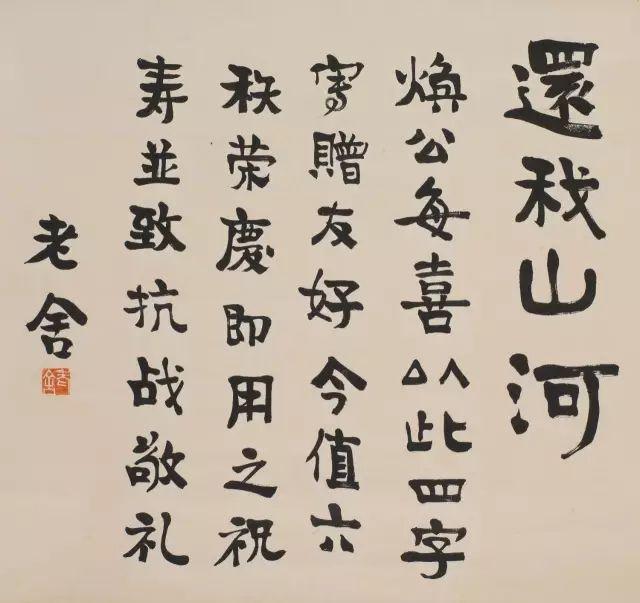 還我山河
煥公每喜以此四字
寫贈友好今值六
秩荣慶即用之祝
寿並致抗战敬礼
老舍
老舍